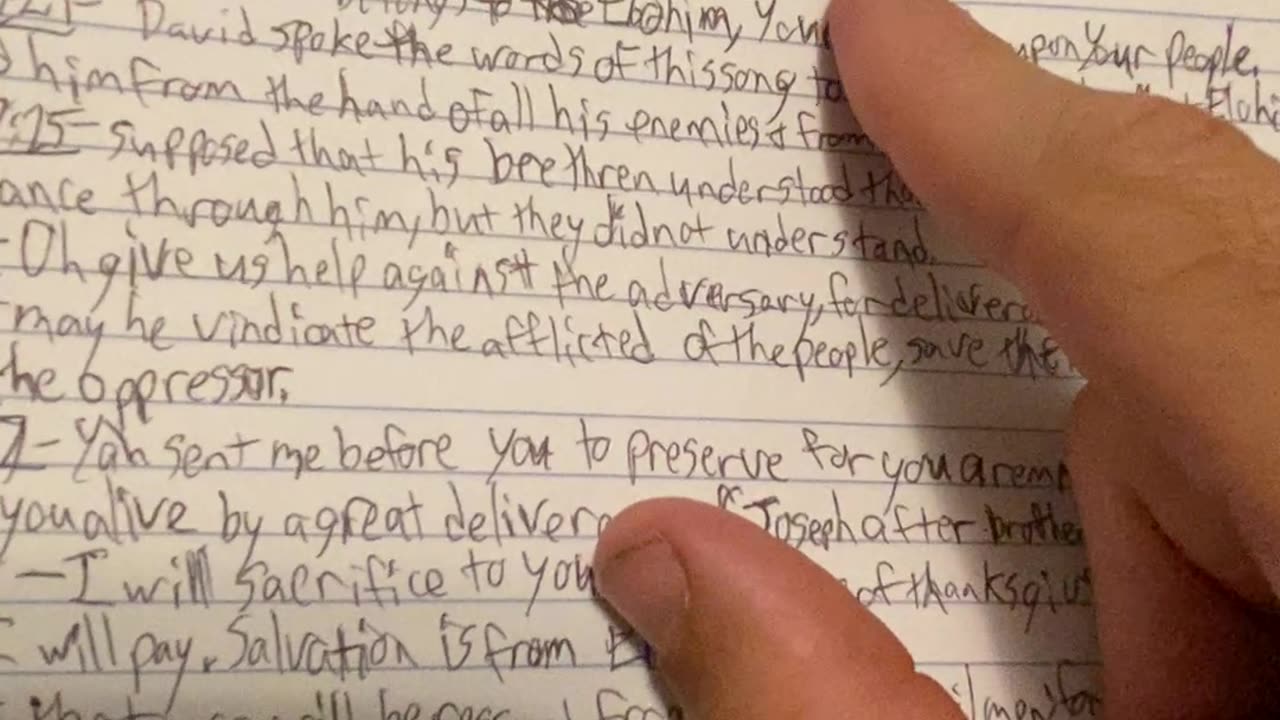 Elohim, You upon Your people.
David spoke the words of this song to Elohi
him from the hand of all his enemies & from
:25- supposed that his breethren understood tha
ance through him, but they did not understand.
- Oh give us help against the adversary, for delivera
may he vindicate the afflicted of the people, save the
he oppressor.
7- Yah sent me before you to preserve for you a remn
you alive by a great delivera Joseph after brothe
- I will sacrifice to you of thanksgiv
I will pay. Salvation is from
that